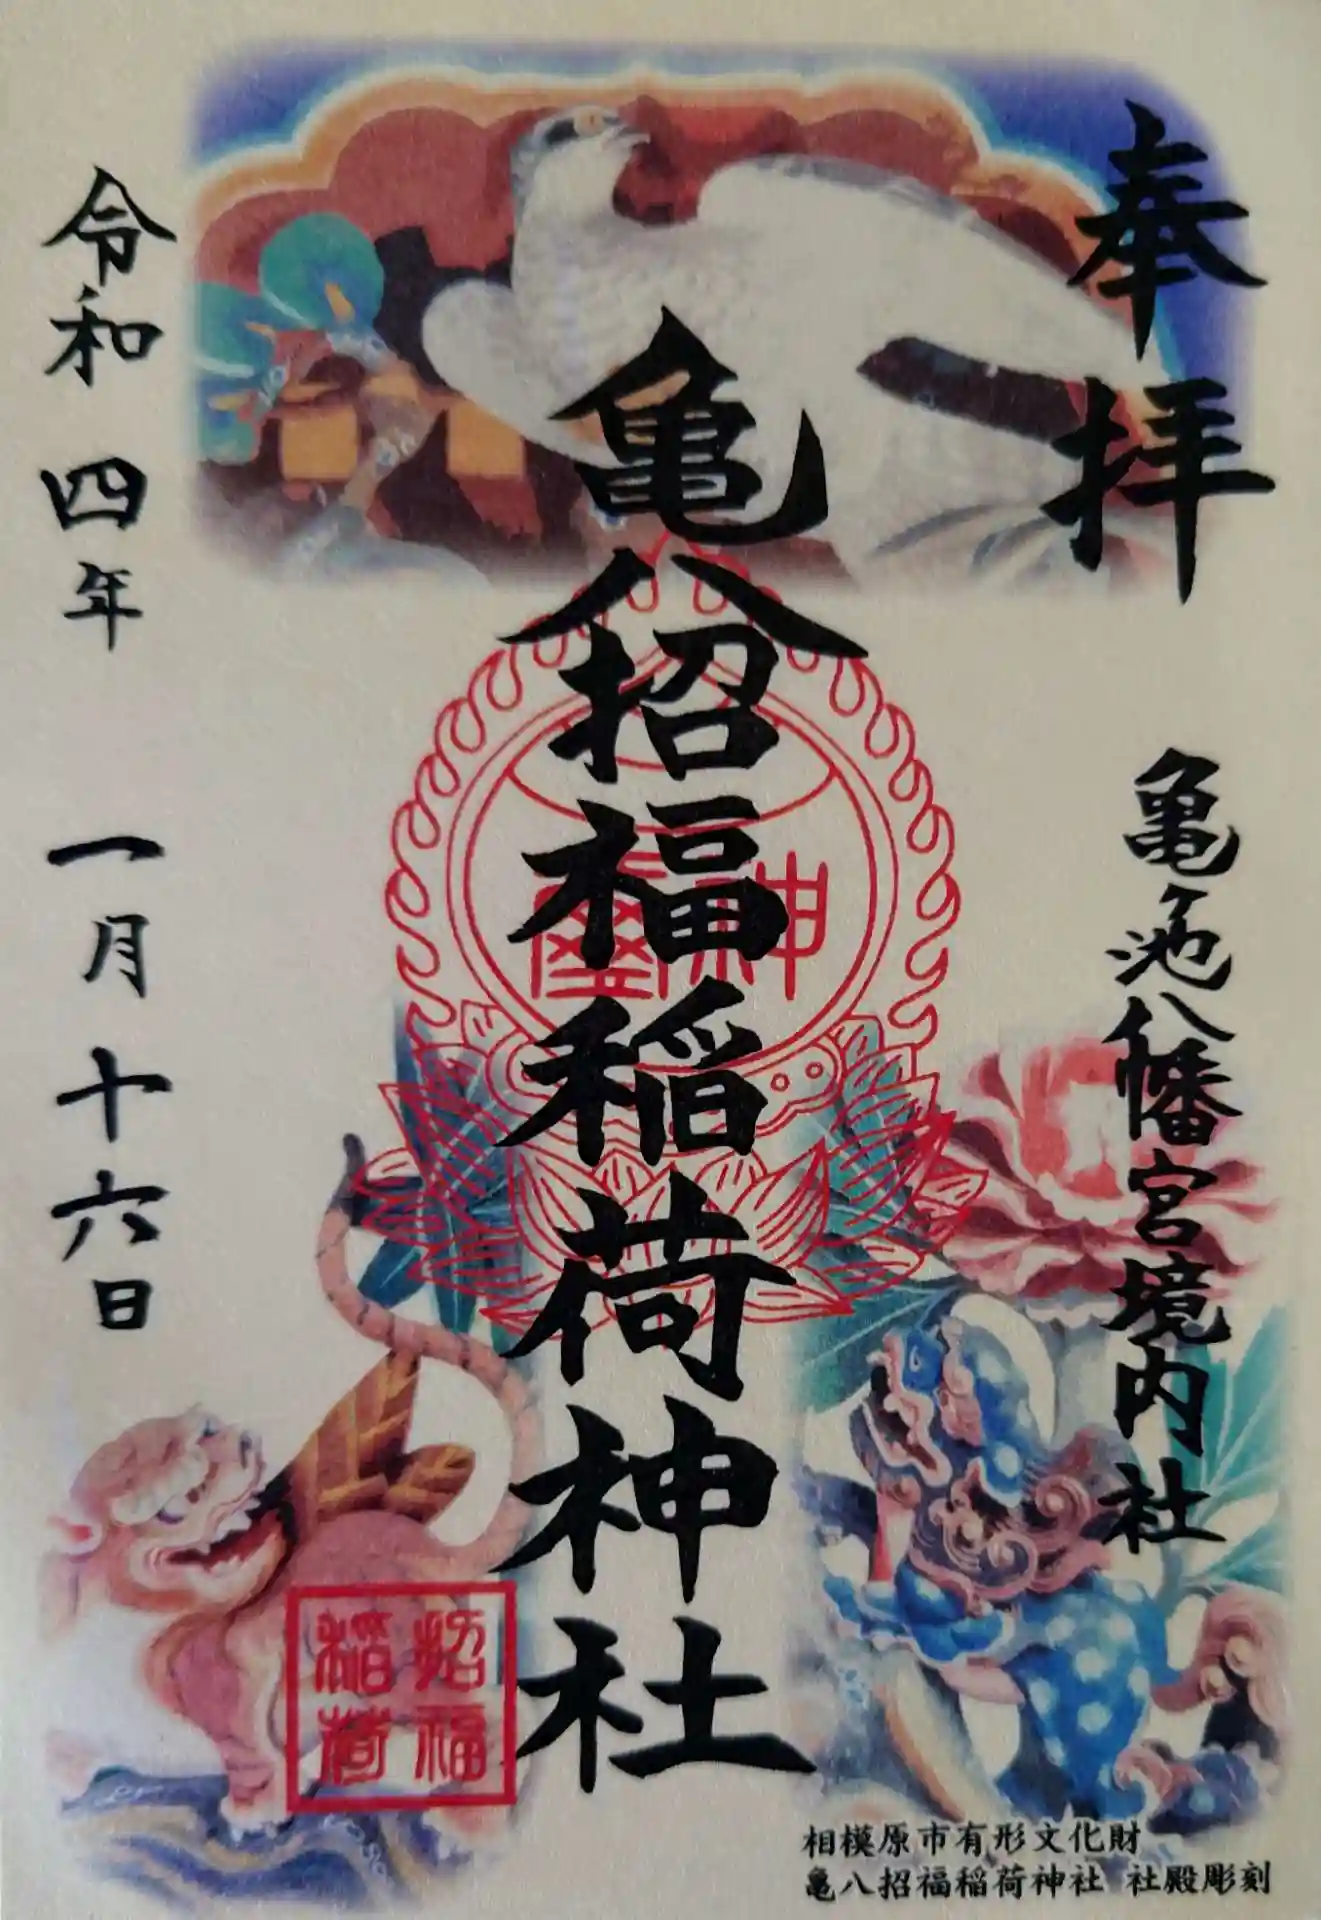 奉拝
亀ヶ池八幡宮境内社
亀八招福稲荷神社
神璽
令和四年 一月十六日
招福
稲荷
相模原市有形文化財
亀八招福稲荷神社 社殿彫刻